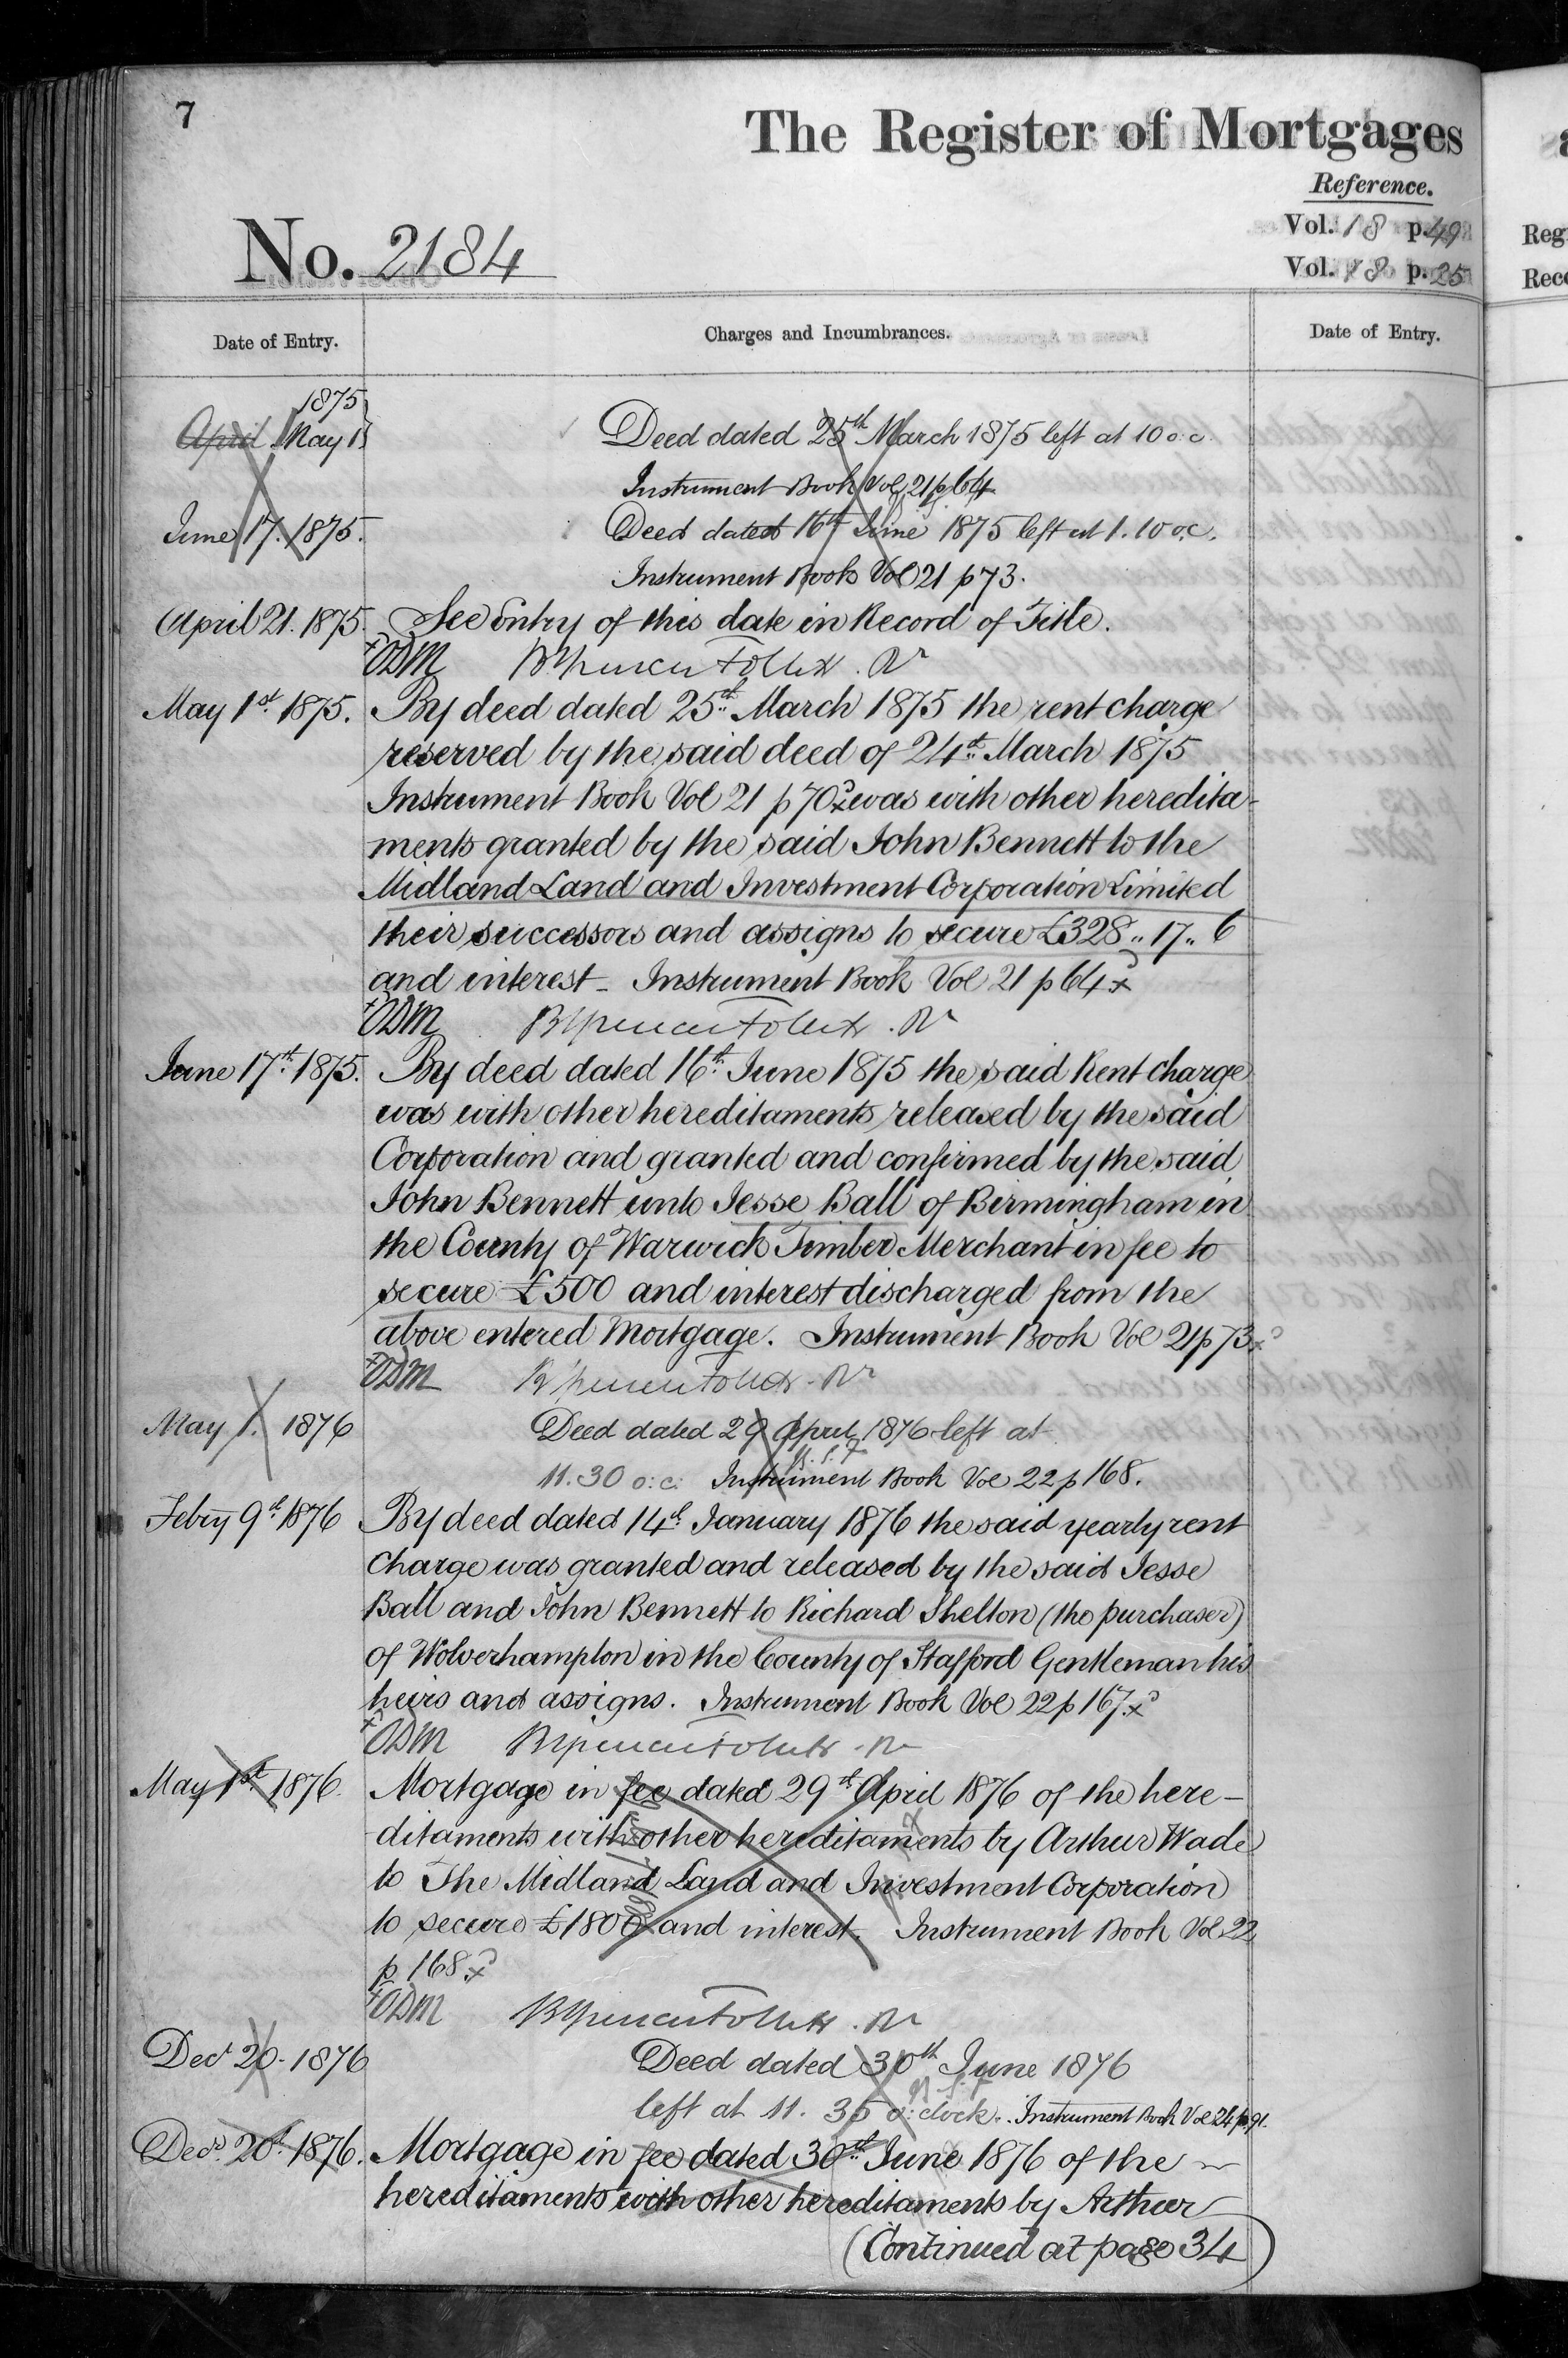 7
The Register of Mortgages
Reference.
Vol. 18 p. 49
No. 2184
Vol. 18 p. 25
Reg
Rec
Date of Entry.
Charges and Incumbrances.
Date of Entry.
1875
April May 1
Deed dated 25th March 1875 left at 10 o.c.
Instrument Book Vol 21 p 64
June 17. 1875.
Deed dated 16th June 1875 left at 1.10 o.c.
Instrument Book Vol 21 p 73.
April 21. 1875.
See Entry of this date in Record of Title.
ODM
May 1st 1875.
By deed dated 25th March 1875 the rent charge
reserved by the said deed of 24th March 1875
Instrument Book Vol 21 p 70 was with other heredita-
ments granted by the said John Bennett to the
Midland Land and Investment Corporation Limited
their successors and assigns to secure £328,, 17,, 6
and interest - Instrument Book Vol 21 p 64
ODM
June 17th 1875.
By deed dated 16th June 1875 the said Rent charge
was with other hereditaments released by the said
Corporation and granted and confirmed by the said
John Bennett unto Jesse Ball of Birmingham in
the County of Warwick Timber Merchant in fee to
secure £500 and interest discharged from the
above entered Mortgage. Instrument Book Vol 21 p 73
ODM
May 1. 1876
Deed dated 29 April 1876 left at
11.30 o:c: Instrument Book Vol 22 p 168.
Febry 9th 1876
By deed dated 14th January 1876 the said yearly rent
charge was granted and released by the said Jesse
Ball and John Bennett to Richard Shelton (the purchaser)
of Wolverhampton in the County of Stafford Gentleman his
heirs and assigns. Instrument Book Vol 22 p 167
ODM
May 1st 1876.
Mortgage in fee dated 29th April 1876 of the here-
ditaments with other hereditaments by Arthur Wade
to The Midland Land and Investment Corporation
to secure £1800 and interest. Instrument Book Vol 22
p 168
ODM
Decr 20. 1876
Deed dated 30th June 1876
left at 11. 35 o:clock. Instrument Book Vol 24 p 91.
Decr 20th 1876.
Mortgage in fee dated 30th June 1876 of the
hereditaments with other hereditaments by Arthur
(Continued at page 34)